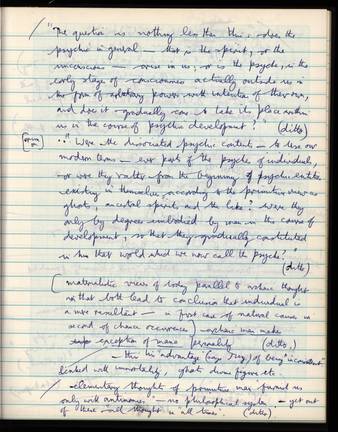 "The question is nothing less than this: does the
psychic in general — that is the spirit, or the
unconscious — arise in us; or is the psyche, in the
early stages of consciousness actually outside us in
the form of arbitrary powers with intention of their own,
and does it gradually come to take its place within
us in the course of psychic development? (ditto)
"Were the dissociated psychic contents — to use our
modern terms — ever parts of the psyche of individuals,
or were they rather from the beginning psychic entities
existing in themselves according to the primitive view as
ghosts, ancestral spirits and the like? Were they
only by degrees embodied by man in the course of
development, so that they gradually constituted
in him that world which we now call the psyche?"
(ditto)
materialistic views of today parallel to archaic thought
in that both lead to conclusion that individual is
a mere resultant — in first case of natural causes, in
second of chance occurrences) — archaic man make
exception of personality (ditto,)
— this his "advantage (says Jung) of being "inconsistent"
linked with immortality, ghosts
elementary thought of primitive man furnished us
only with antinomies — no philosophical system — yet out
of these "all thought in all times". (ditto)